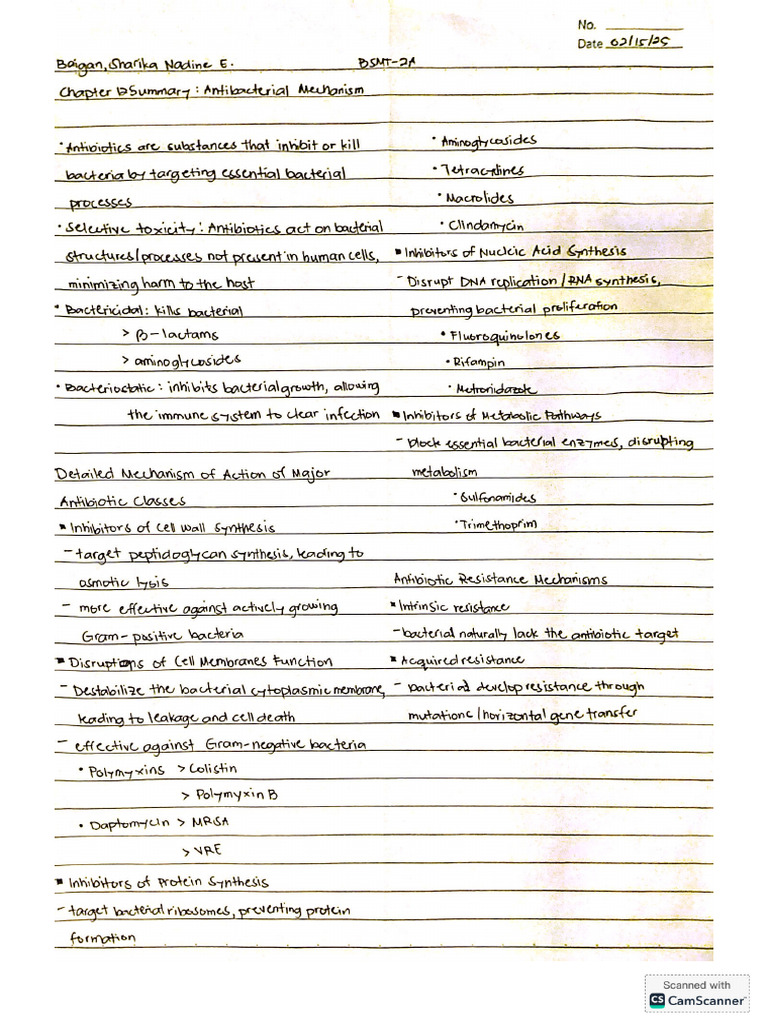 No.
Date 02/15/25
Baigan, Sharika Nadine E. BSMT-2A
Chapter 12 Summary : Antibacterial Mechanism
• Antibiotics are substances that inhibit or kill
bacteria by targeting essential bacterial
processes
• Selective toxicity : Antibiotics act on bacterial
structures/processes not present in human cells,
minimizing harm to the host
• Bactericidal : kills bacterial
> β-lactams
> aminoglycosides
• Bacteriostatic : inhibits bacterial growth, allowing
the immune system to clear infection
Detailed Mechanism of Action of Major
Antibiotic Classes
▪ Inhibitors of Cell Wall Synthesis
- target peptidoglycan synthesis, leading to
osmotic lysis
- more effective against actively growing
Gram-positive bacteria
▪ Disruptions of Cell Membranes Function
- Destabilize the bacterial cytoplasmic membrane,
leading to leakage and cell death
- effective against Gram-negative bacteria
• Polymyxins > Colistin
> Polymyxin B
• Daptomycin > MRSA
> VRE
▪ Inhibitors of Protein Synthesis
- target bacterial ribosomes, preventing protein
formation
• Aminoglycosides
• Tetracylines
• Macrolides
• Clindamycin
▪ Inhibitors of Nucleic Acid Synthesis
- Disrupt DNA replication / RNA synthesis,
preventing bacterial proliferation
• Fluoroquinolones
• Rifampin
• Metronidazole
▪ Inhibitors of Metabolic Pathways
- block essential bacterial enzymes, disrupting
metabolism
• Sulfonamides
• Trimethoprim
Antibiotic Resistance Mechanisms
▪ Intrinsic resistance
- bacterial naturally lack the antibiotic target
▪ Acquired resistance
- bacterial develop resistance through
mutations / horizontal gene transfer
Scanned with
CS CamScanner